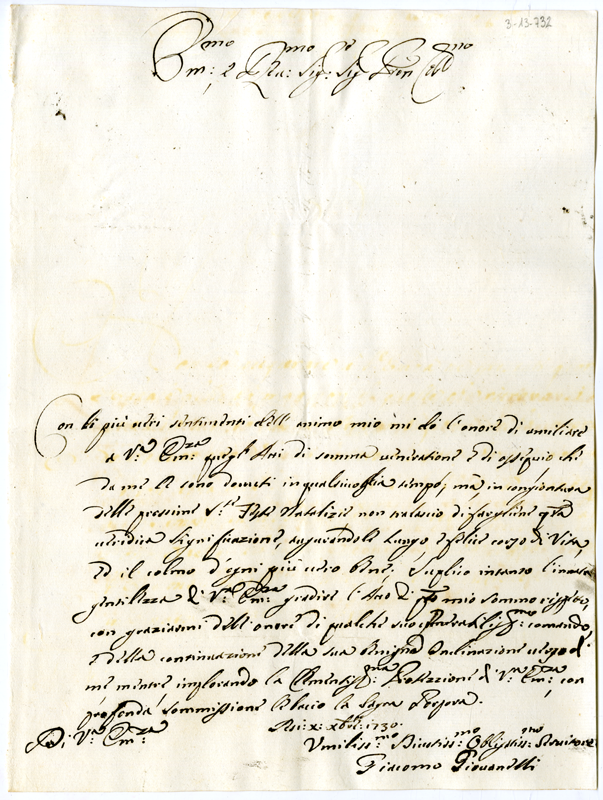 3-13-732
Em:mo e R:mo Sig:r Sig:r Pron Col:mo
Con li più veri sentimenti dell'animo mio mi dò l'onore di umiliare
a V:a Em:za quegl'Atti di somma veneratione e di ossequio che
da me le sono dovuti in qualsivoglia tempo; mà, in congiuntura
delle prossime S:te Feste Natalizie non tralascio di fargliene q:sta
veridica significazione, augurandole lungo e felice corso di Vita,
ed il colmo d'ogni più vero bene; Suplico intanto l'innata
gentilezza di V:a Em:za gradire l'Atto di q:sto mio sommo rispetto,
con graziarmi dell'onore di qualche suo comando,
e della continuazione della sua benigna Inclinazione verso di
me mentre implorando la Clementiss:ma Protezzione di V:a Em:za con
profonda sommissione bacio la Sagra Porpora.
x: Xbre 1730.
Di V:a Em:za
Umiliss:mo Obligatiss:mo Servitore
Giacomo Giovanelli